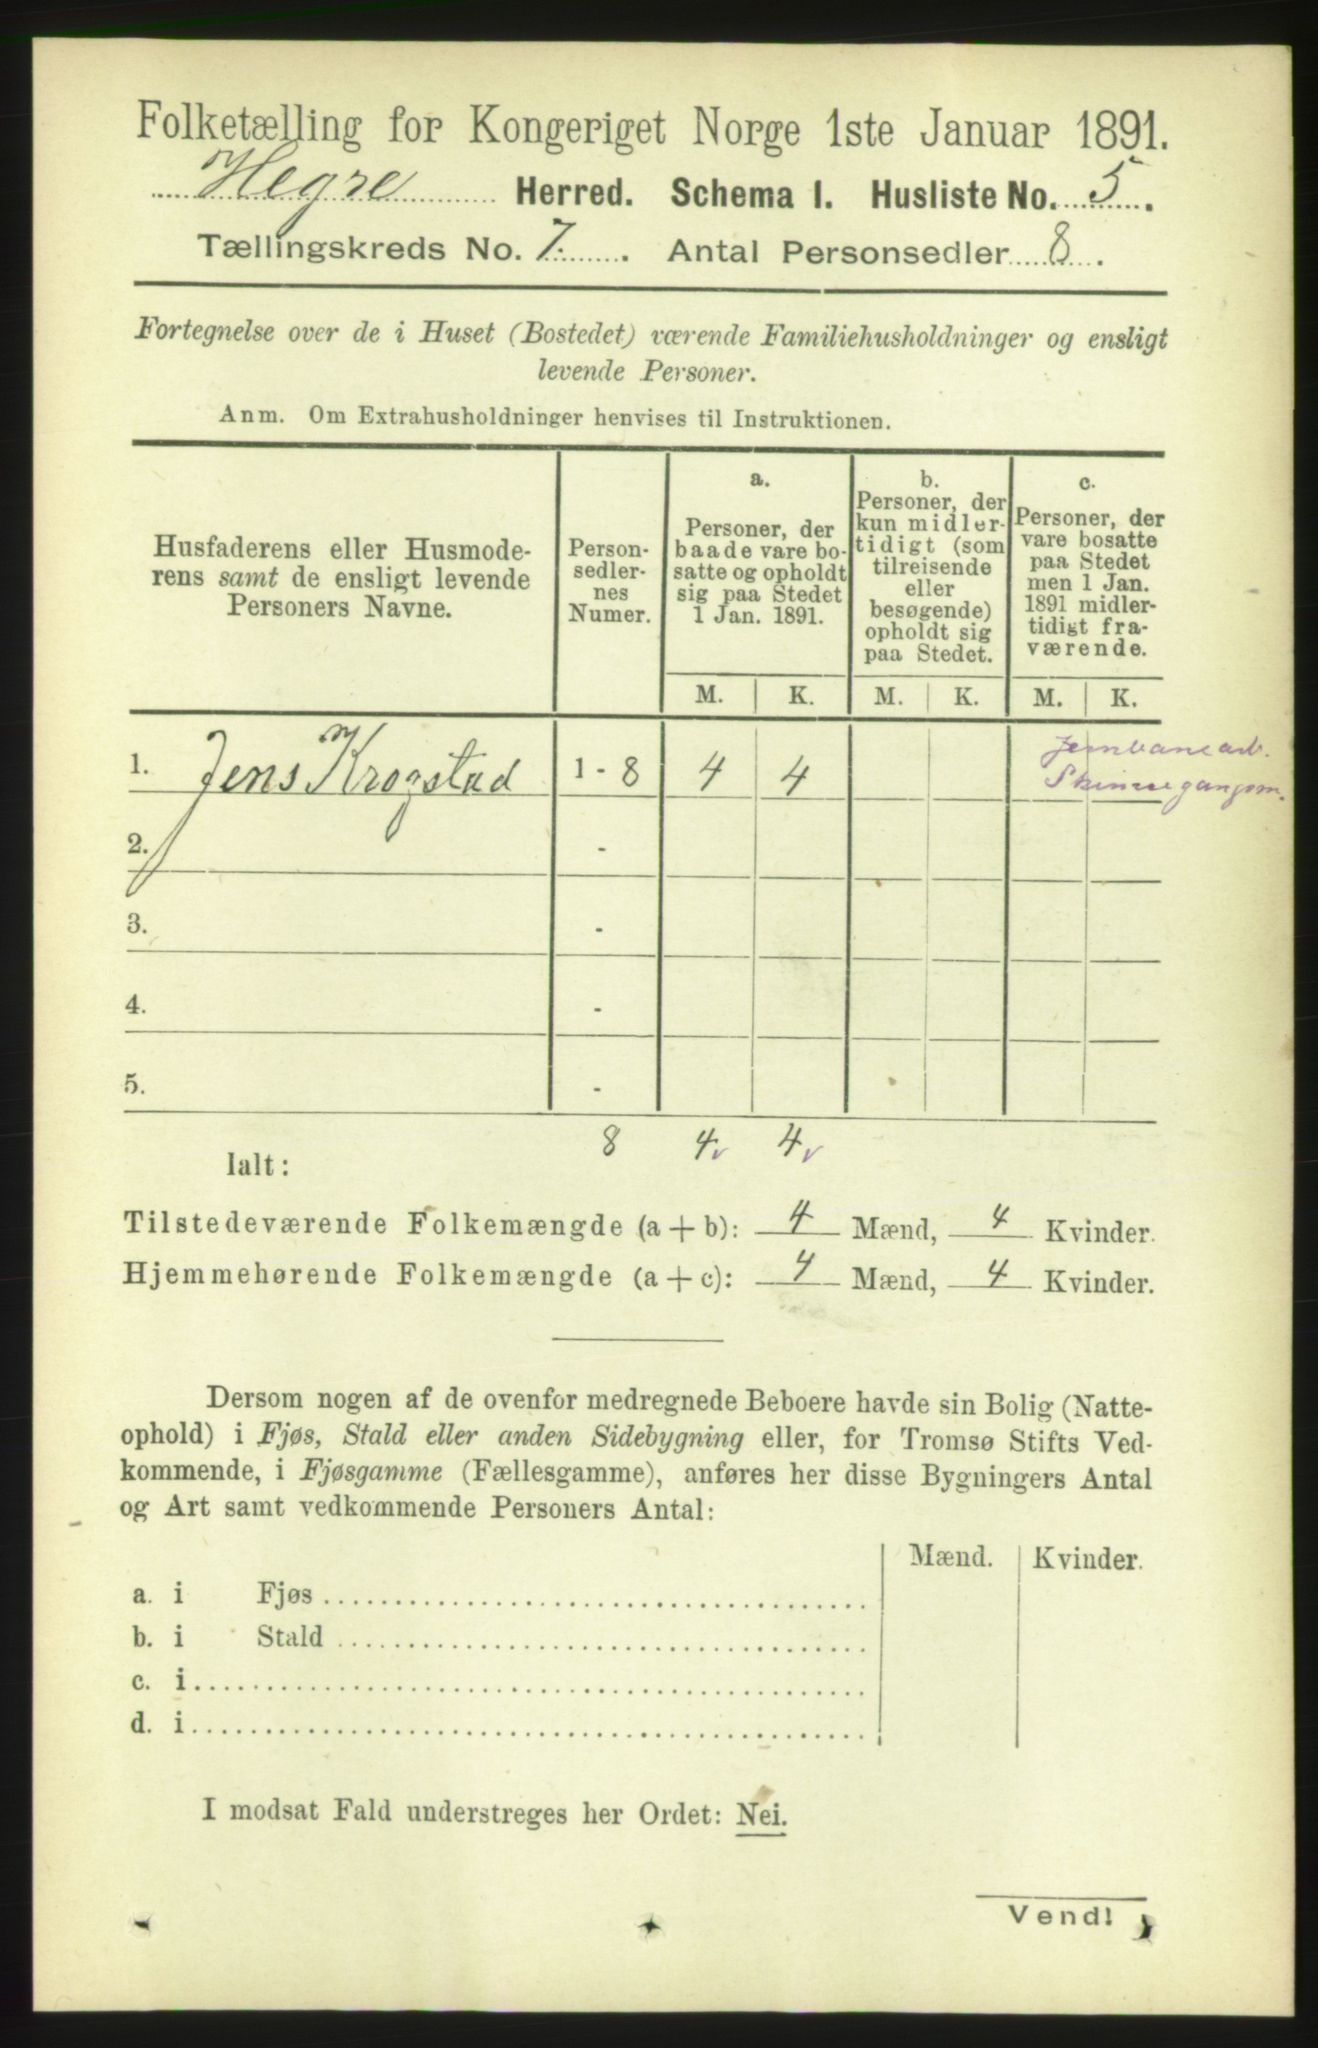 Folketælling for Kongeriget Norge 1ste Januar 1891.
Hegre Herred. Schema I. Husliste No. 5.
Tællingskreds No. 7. Antal Personsedler 8.
Fortegnelse over de i Huset (Bostedet) værende Familiehusholdninger og ensligt
levende Personer.
Anm. Om Extrahusholdninger henvises til Instruktionen.
Husfaderens eller Husmode-
rens samt de ensligt levende
Personers Navne.
Person-
sedler-
nes
Numer.
a.
Personer, der
baade vare bo-
satte og opholdt
sig paa Stedet
1 Jan. 1891.
b.
Personer, der
kun midler-
tidigt (som
tilreisende
eller
besøgende)
opholdt sig
paa Stedet.
c.
Personer, der
vare bosatte
paa Stedet
men 1 Jan.
1891 midler-
tidigt fra-
værende.
M. K. M. K. M. K.
1. Jens Krogstad 1 - 8 4 4 Jernbanearb.
Skinnegangsm.
2. -
3. -
4. -
5. -
8 4 v 4 v
Ialt:
Tilstedeværende Folkemængde (a + b): 4 Mænd, 4 Kvinder.
Hjemmehørende Folkemængde (a + c): 4 Mænd, 4 Kvinder.
Dersom nogen af de ovenfor medregnede Beboere havde sin Bolig (Natte-
ophold) i Fjøs, Stald eller anden Sidebygning eller, for Tromsø Stifts Ved-
kommende, i Fjøsgamme (Fællesgamme), anføres her disse Bygningers Antal
og Art samt vedkommende Personers Antal:
Mænd. Kvinder.
a. i Fjøs
b. i Stald
c. i
d. i
I modsat Fald understreges her Ordet: Nei.
Vend!